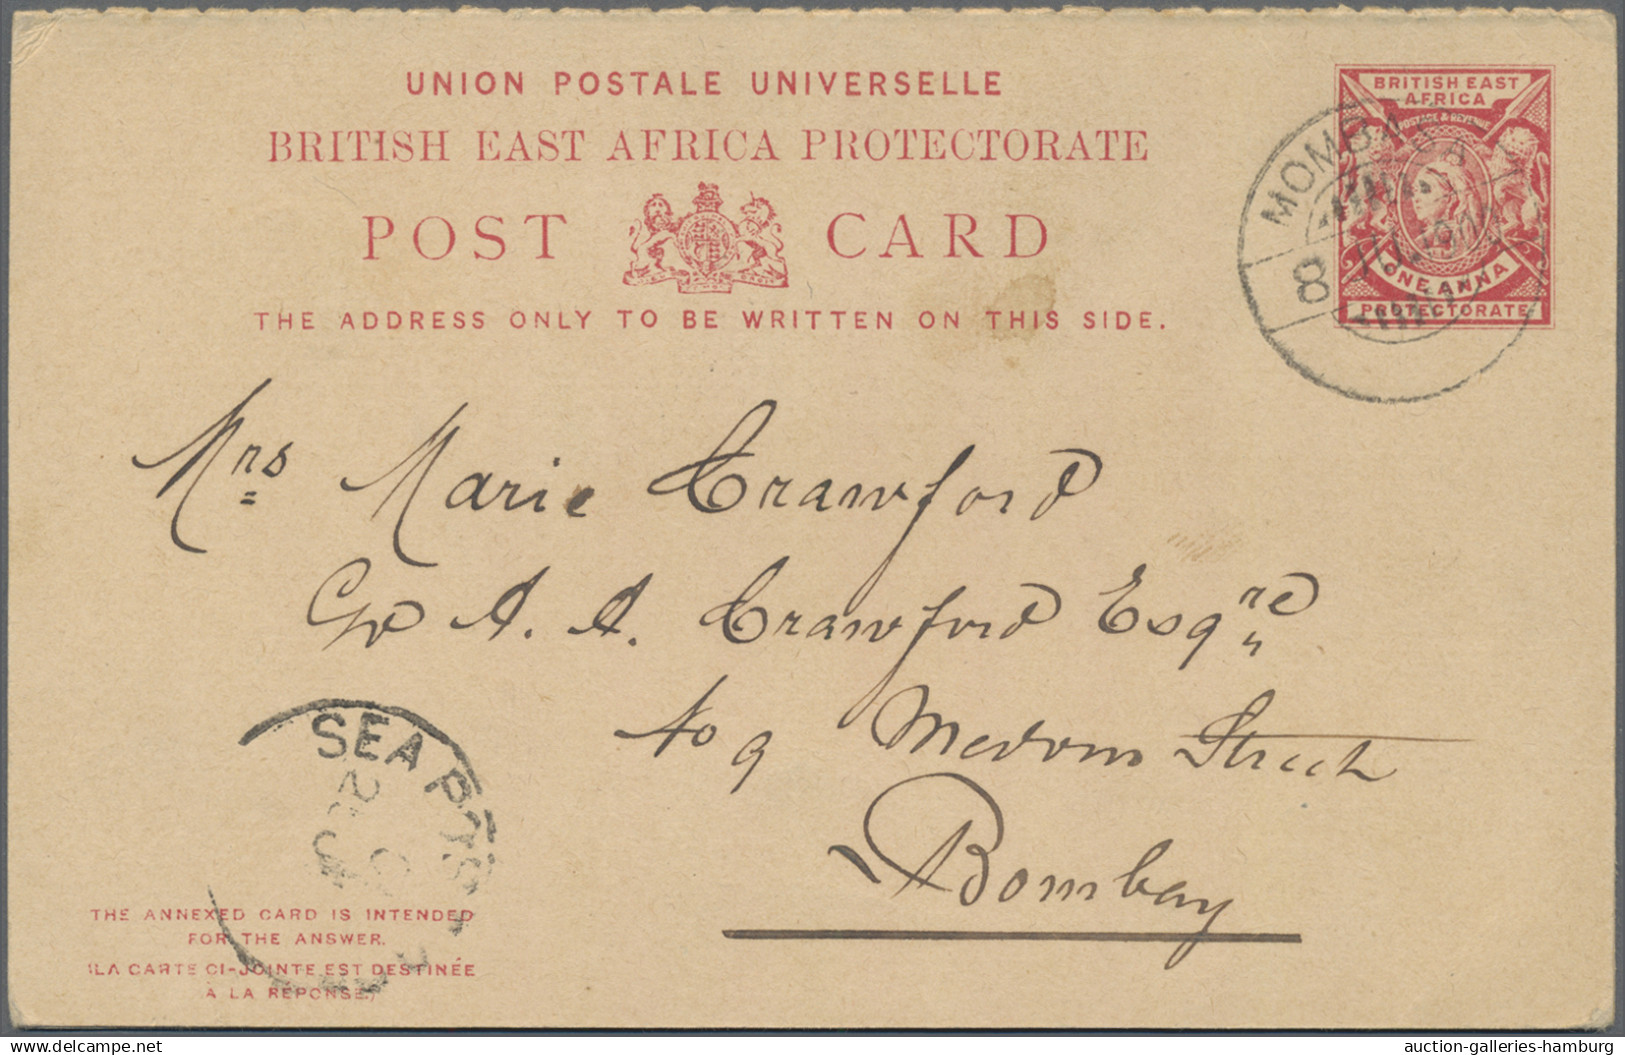 UNION POSTALE UNIVERSELLE
BRITISH EAST AFRICA PROTECTORATE
POST CARD
THE ADDRESS ONLY TO BE WRITTEN ON THIS SIDE.
BRITISH EAST
AFRICA
POSTAGE & REVENUE
ONE ANNA
PROTECTORATE
MOMBASA
8
Mrs Marie Crawford
A. A. Crawford Esqre
No 9 Street
Bombay
SEA P
THE ANNEXED CARD IS INTENDED
FOR THE ANSWER.
(LA CARTE CI-JOINTE EST DESTINÉE
A LA RÉPONSE.)
delcampe.net
auction-galleries-hamburg